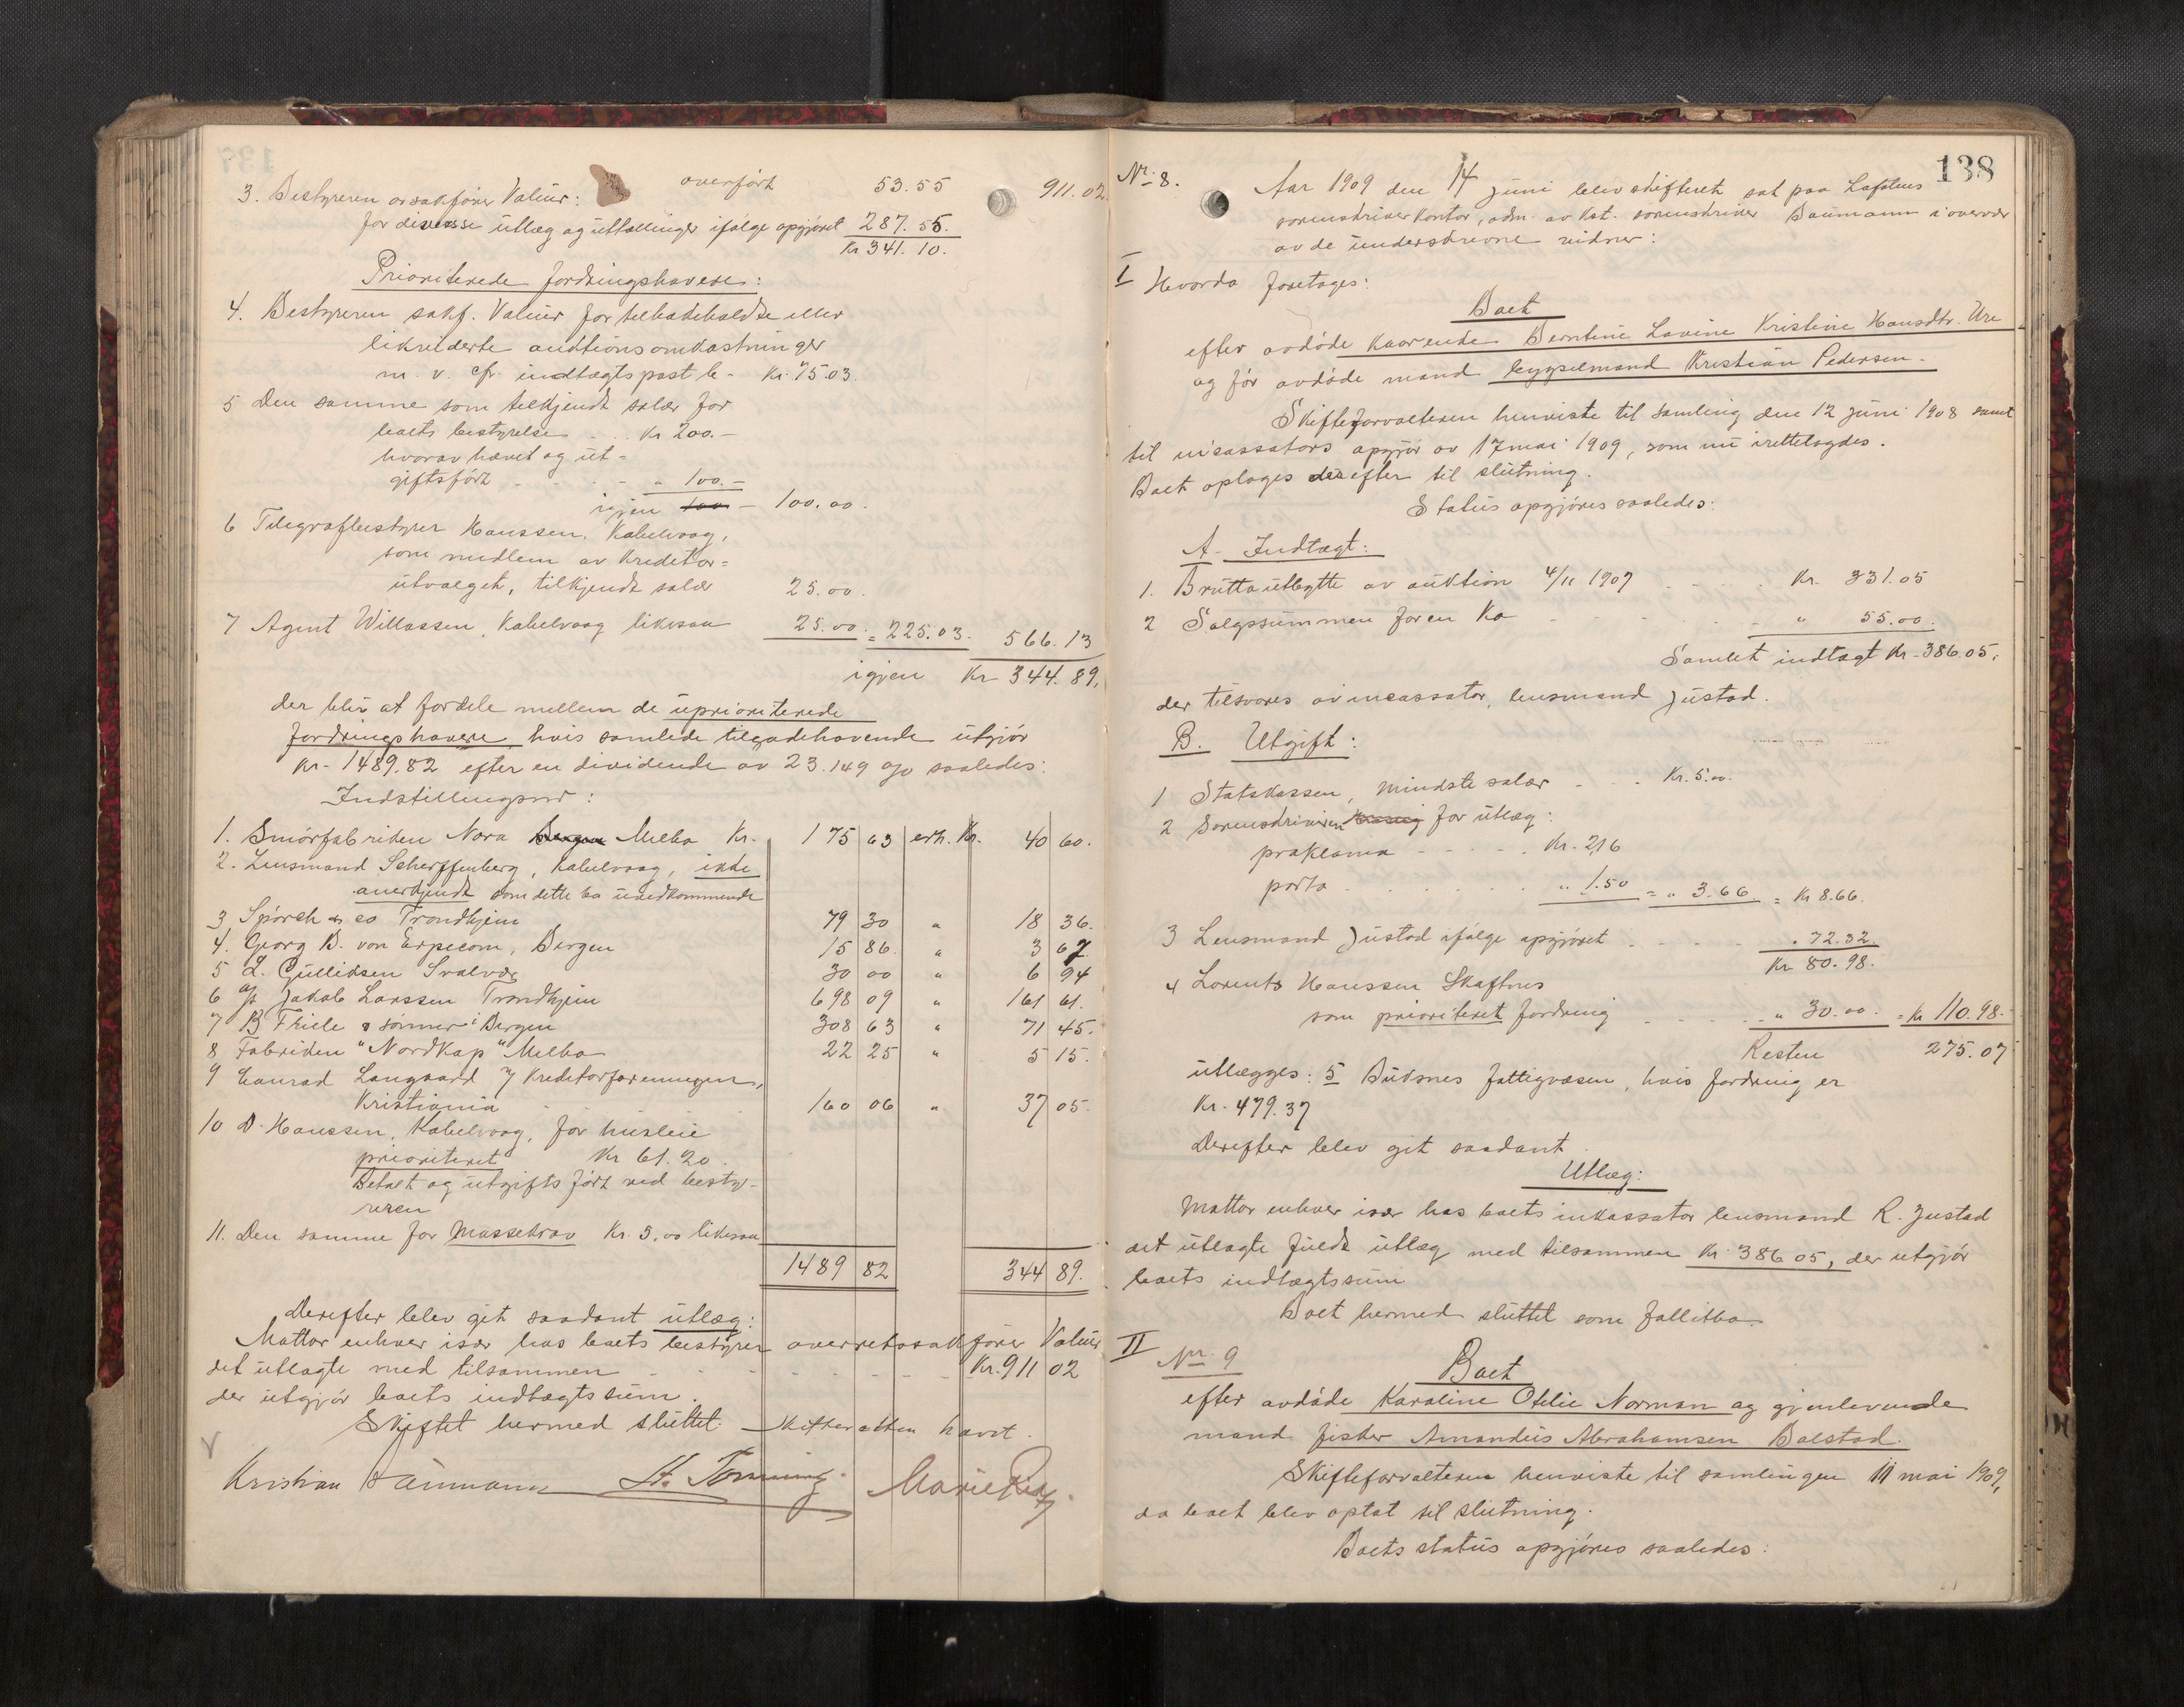 overført 53.55 911.02
3. Bestyreren orsakfører Valeur:
for diverse utlæg og uttællinger ifølge opgjøret 287.55.
Kr 341.10.
Prioriterede fordringshavere:
4. Bestyreren sakf. Valeur for tilbakeholdte eller
likviderte auktionsomkostninger
m. v. cfr. indtægtspost b - Kr. 75.03.
5 Den samme som tilkjendt salær for
boets bestyrelse Kr 200.-
hvorav hævet og ut-
giftsført - - - " 100.-
igjen 100 - 100.00.
6 Telegrafbestyrer Hanssen, Kabelvaag,
som medlem av Kreditor-
utvalget, tilkjendt salær 25.00.
7 Agent Willassen, Kabelvaag likesaa 25.00. = 225.03. 566.13
igjen Kr 344.89.
der blir at fordele mellem de uprioriterede
fordringshavere, hvis samlede tilgodehavende utgjør
Kr. 1489.82 efter en dividende av 23.149 % saaledes:
Indstillingsnr:
1. Smørfabriken Nora Bergen Melbo Kr. 175 63 erh. Kr. 40 60.
2. Lensmand Scherffenberg, Kabelvaag, ikke
anerkjendt som dette bo uvedkommende
3 Spörck & co Trondhjem 79 30 " 18 36.
4. Georg B. von Erpecom, Bergen 15 86 " 3 67
5 L. Gullidsen Svolvær 30 00 " 6 94
6 A/S Jakob Larssen Trondhjem 698 09 " 161 61.
7 B Friele & sønner i Bergen 308 63 " 71 45.
8 Fabriken "Nordkap" Melbo 22 25 " 5 15.
9 Conrad Langaard v/ Kreditorforeningen,
Kristiania 160 06 " 37 05.
10 D. Hanssen, Kabelvaag, for husleie
prioriteret Kr 61.20.
Betalt og utgiftsført ved besty-
reren
11. Den samme for Massekrav Kr. 5.00 likesaa
1489 82 344 89.
Derefter blev git saadant utlæg:
Mottar enhver især hos boets bestyrer overretssakfører Valeur
det utlagte med tilsammen - - - - - Kr. 911 02
der utgjør boets indtægtssum.
Skiftet hermed sluttet. Skifteretten hævet.
Kristian Baumann
138
Nr. 8. Aar 1909 den 14 juni blev skifteret sat paa Lofotens
sorenskriverkontor, adm. av Kst. sorenskriver Baumann i overvær
av de underskrevne vidner:
I Hvorda foretoges:
Boet
efter avdøde kaarenke Berntine Lovine Kristine Hansdtr. Ure
og før avdøde mand bygselmand Kristian Pedersen.
Skifteforvalteren henviste til samling den 12 juni 1908 samt
til incassators opgjør av 17 mai 1909, som nu irettelagdes.
Boet optoges derefter til slutning.
Status opgjøres saaledes:
A. Indtægt:
1. Bruttoutbytte av auktion 4/11 1907 - - - Kr. 331.05
2 Salgssummen for en Ko - - - - - " 55.00.
Samlet indtægt Kr. 386.05.
der tilsvares av incassator, lensmand Justad.
B. Utgift:
1 Statskassen, mindste salær - - - Kr. 5.00.
2 Sorenskriveren for utlæg:
proklama - - - - - Kr. 2.16
porto - - - - - " 1.50 = " 3.66 = Kr 8.66.
3 Lensmand Justad ifølge opgjøret - - - - " 72.32.
Kr 80.98.
4 Lorents Hanssen Skaftnes
som prioriteret fordring - - - - " 30.00. = Kr 110.98.
Resten 275.07
utlægges: 5 Buksnes fattigvæsen, hvis fordring er
Kr. 479.37
Derefter blev git saadant
Utlæg:
Mottar enhver især hos boets inkassator lensmand R. Justad
det utlagte fuldt utlæg med tilsammen Kr. 386 05, der utgjør
boets indtægtssum
Boet hermed sluttet som fallitbo.
II Nr. 9 Boet
efter avdøde Karoline Otilie Norman og gjenlevende
mand fisker Amandus Abrahamsen Balstad.
Skifteforvalteren henviste til samlingen 11 mai 1909,
da boet blev optat til slutning.
Boets status opgjøres saaledes: